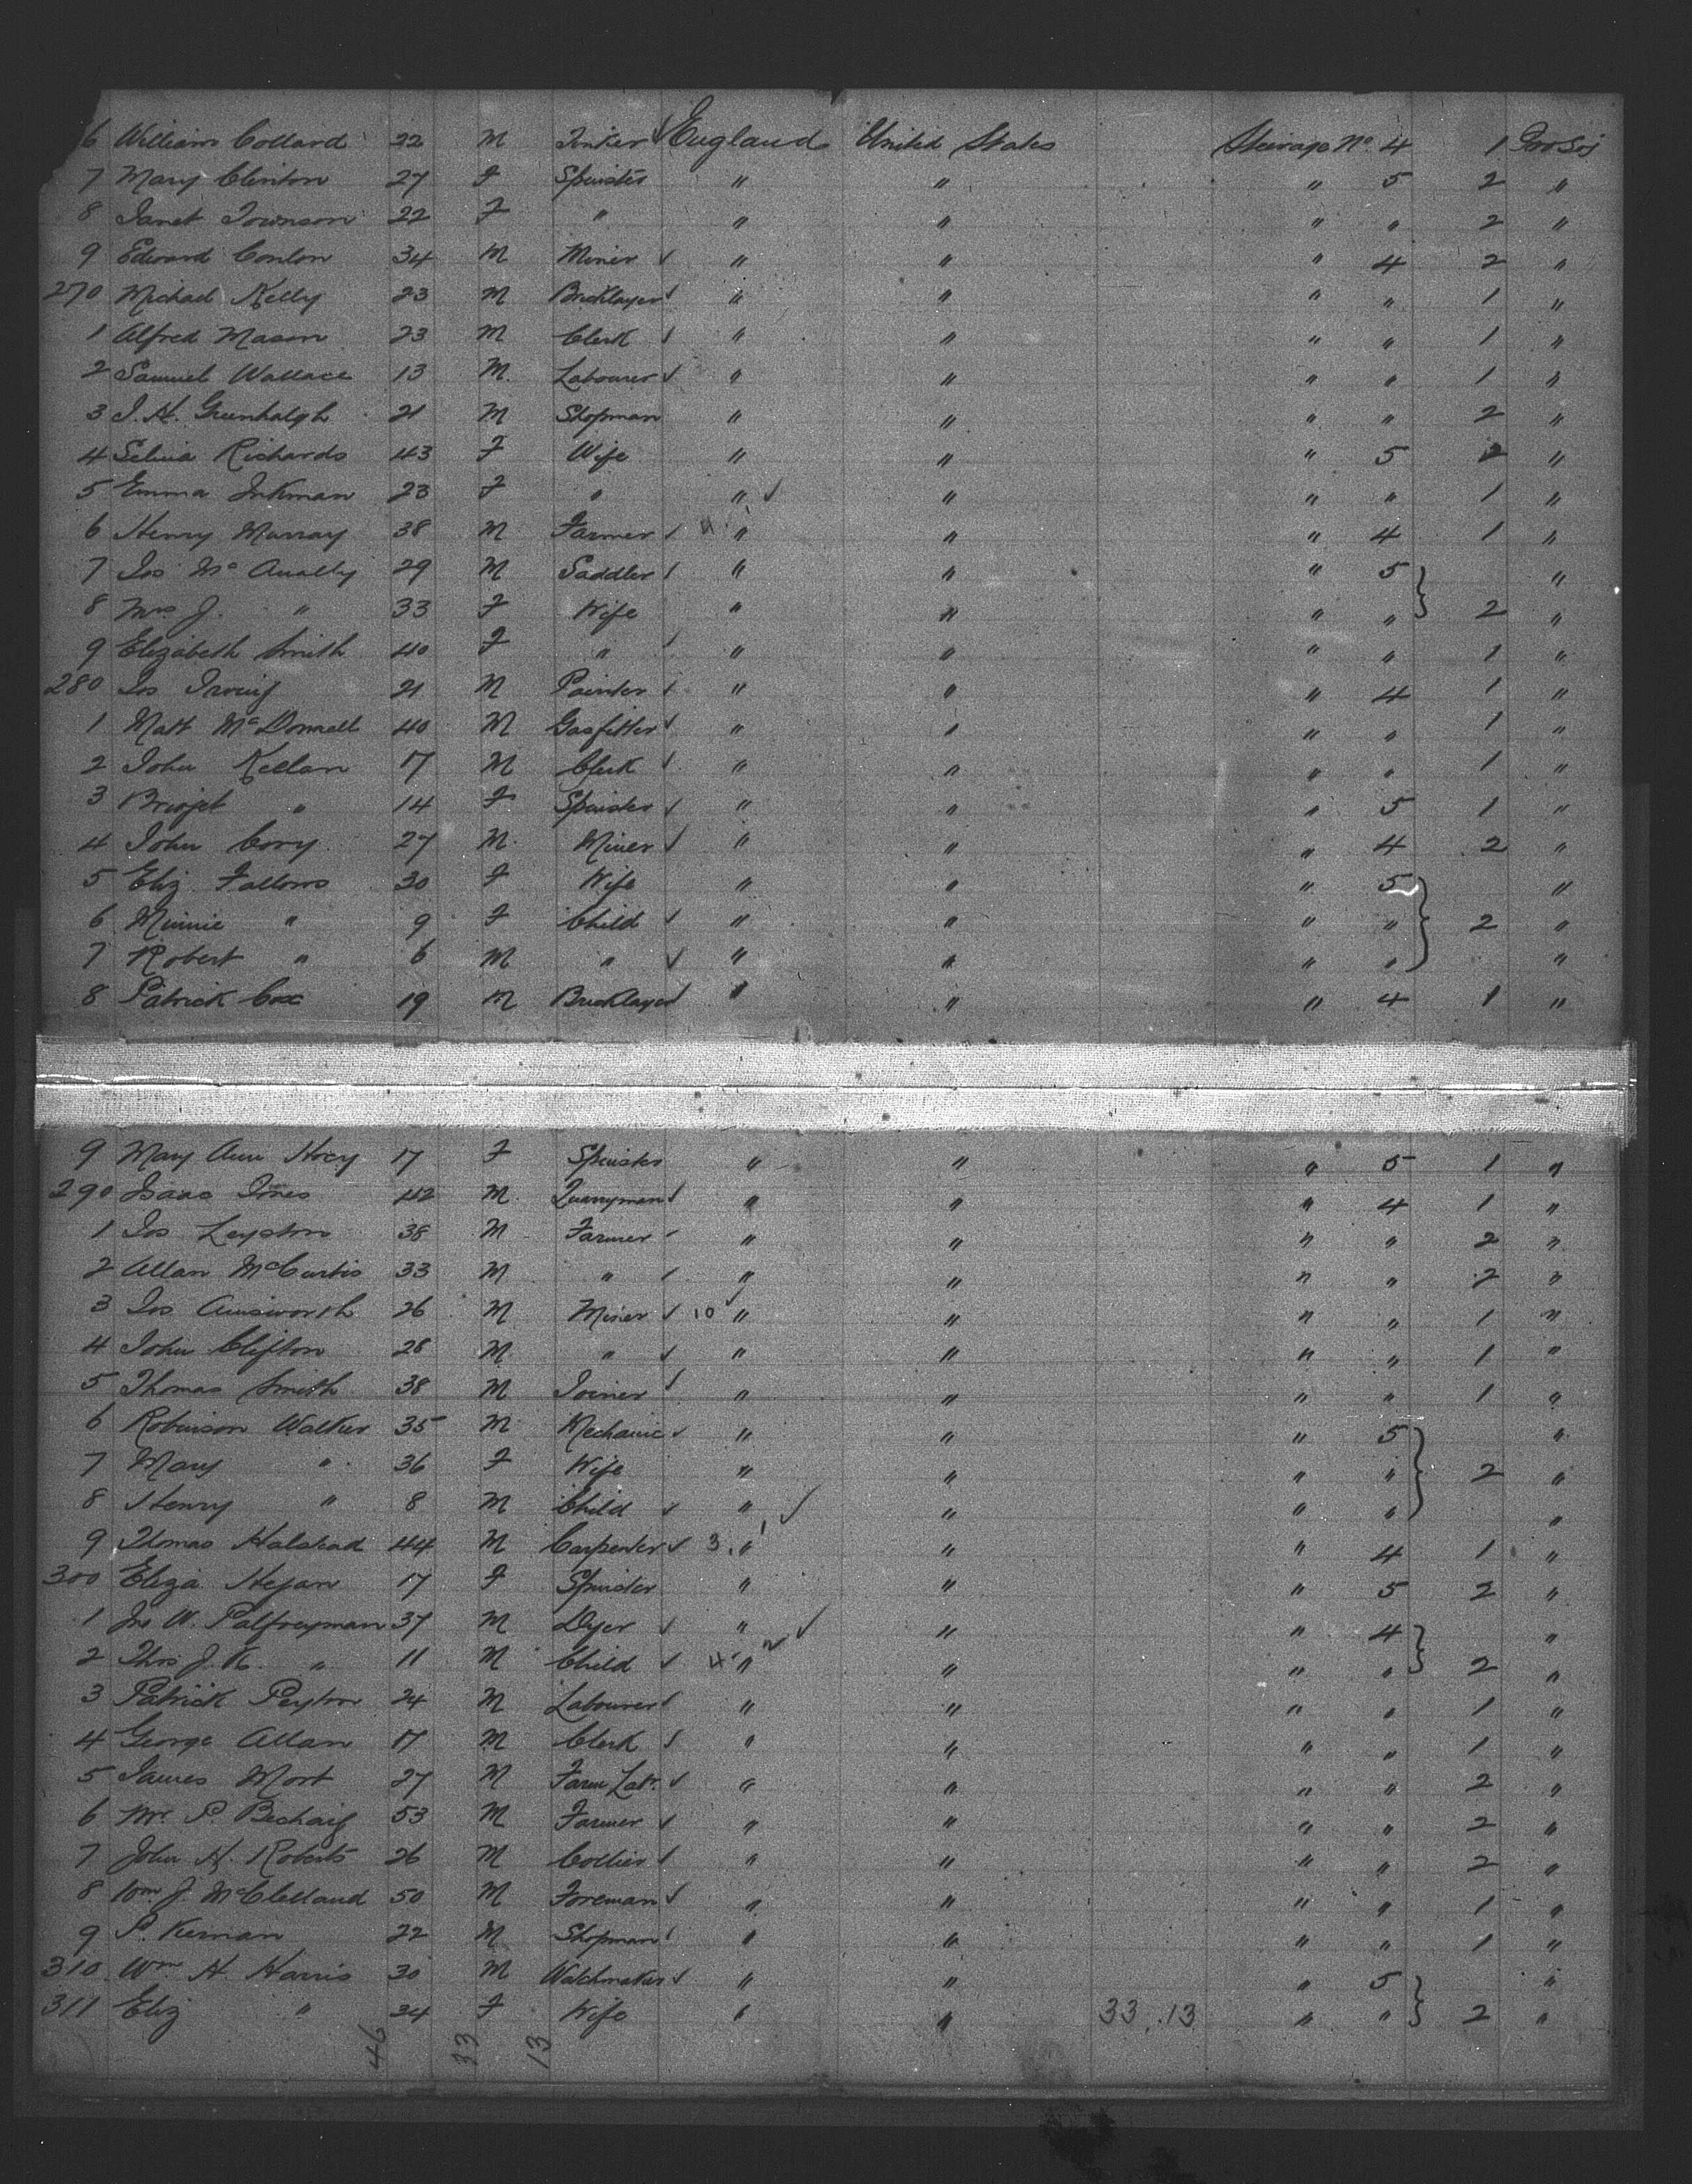 6 William Collard 22 M Tinker England United States Steerage No. 4 1 Pro Soj
7 Mary Clinton 27 F Spinster " " " 5 2 "
8 Janet Townson 22 F " " " " " 2 "
9 Edward Conlon 34 M Miner " " " 4 2 "
270 Michael Kelly 23 M Bricklayer " " " " 1 "
1 Alfred Mason 23 M Clerk " " " " 1 "
2 Samuel Wallace 13 M. Labourer " " " " 1 "
3 J. H. Greenhalgh 21 M Shopman " " " " 2 "
4 Selina Richards 43 F Wife " " " 5 2 "
5 Emma Inkman 23 F " " " " " 1 "
6 Henry Murray 38 M Farmer " " " 4 1 "
7 Jos Mc Anally 29 M Saddler " " " 5 "
8 Mrs J. " 33 F Wife " " " " 2 "
9 Elizabeth Smith 40 F " " " " " 1 "
280 Jos Irving 21 M Painter " " " 4 1 "
1 Matt McDonnell 40 M Gasfitter " " " " 1 "
2 John Keelan 17 M Clerk " " " " 1 "
3 Bridget " 14 F Spinster " " " 5 1 "
4 John Cory 27 M. Miner " " " 4 2 "
5 Eliz Fallows 30 F Wife " " " 5 "
6 Minnie " 9 F Child " " " " 2 "
7 Robert " 6 M " " " " " "
8 Patrick Cox 19 M Bricklayer " " " 4 1 "
9 Mary Ann Hoey 17 F Spinster " " " 5 1 "
290 Isaac Jones 42 M. Quarryman " " " 4 1 "
1 Jos Leyston 38 M Farmer " " " " 2 "
2 Allan McCurtis 33 M " " " " " 2 "
3 Jos Ainsworth 26 M Miner 10 " " " " 1 "
4 John Clifton 28 M " " " " " 1 "
5 Thomas Smith 38 M Joiner " " " " 1 "
6 Robinson Walker 35 M Mechanic " " " 5 "
7 Mary " 36 F Wife " " " " 2 "
8 Henry " 8 M Child " " " " "
9 Thomas Halstead 44 M Carpenter 3. " " " 4 1 "
300 Eliza Hegan 17 F Spinster " " " 5 2 "
1 Jno W. Palfreyman 37 M Dyer " " " 4 "
2 Thos J. K. " 11 M Child 4 " " " " 2 "
3 Patrick Peyton 24 M Labourer " " " " 1 "
4 George Allan 17 M Clerk " " " " 1 "
5 James Mort 27 M Farm Labr. " " " " 2 "
6 Mr. P. 53 M Farmer " " " " 2 "
7 John H. Roberts 26 M Collier " " " " 2 "
8 Wm J. McClelland 50 M Foreman " " " " 1 "
9 P. Kernan 22 M Shopman " " " " 1 "
310 Wm H Harris 30 M Watchmaker " " " 5 "
311 Eliz " 34 F Wife " " 33 . 13 " " 2 "
46 33 13